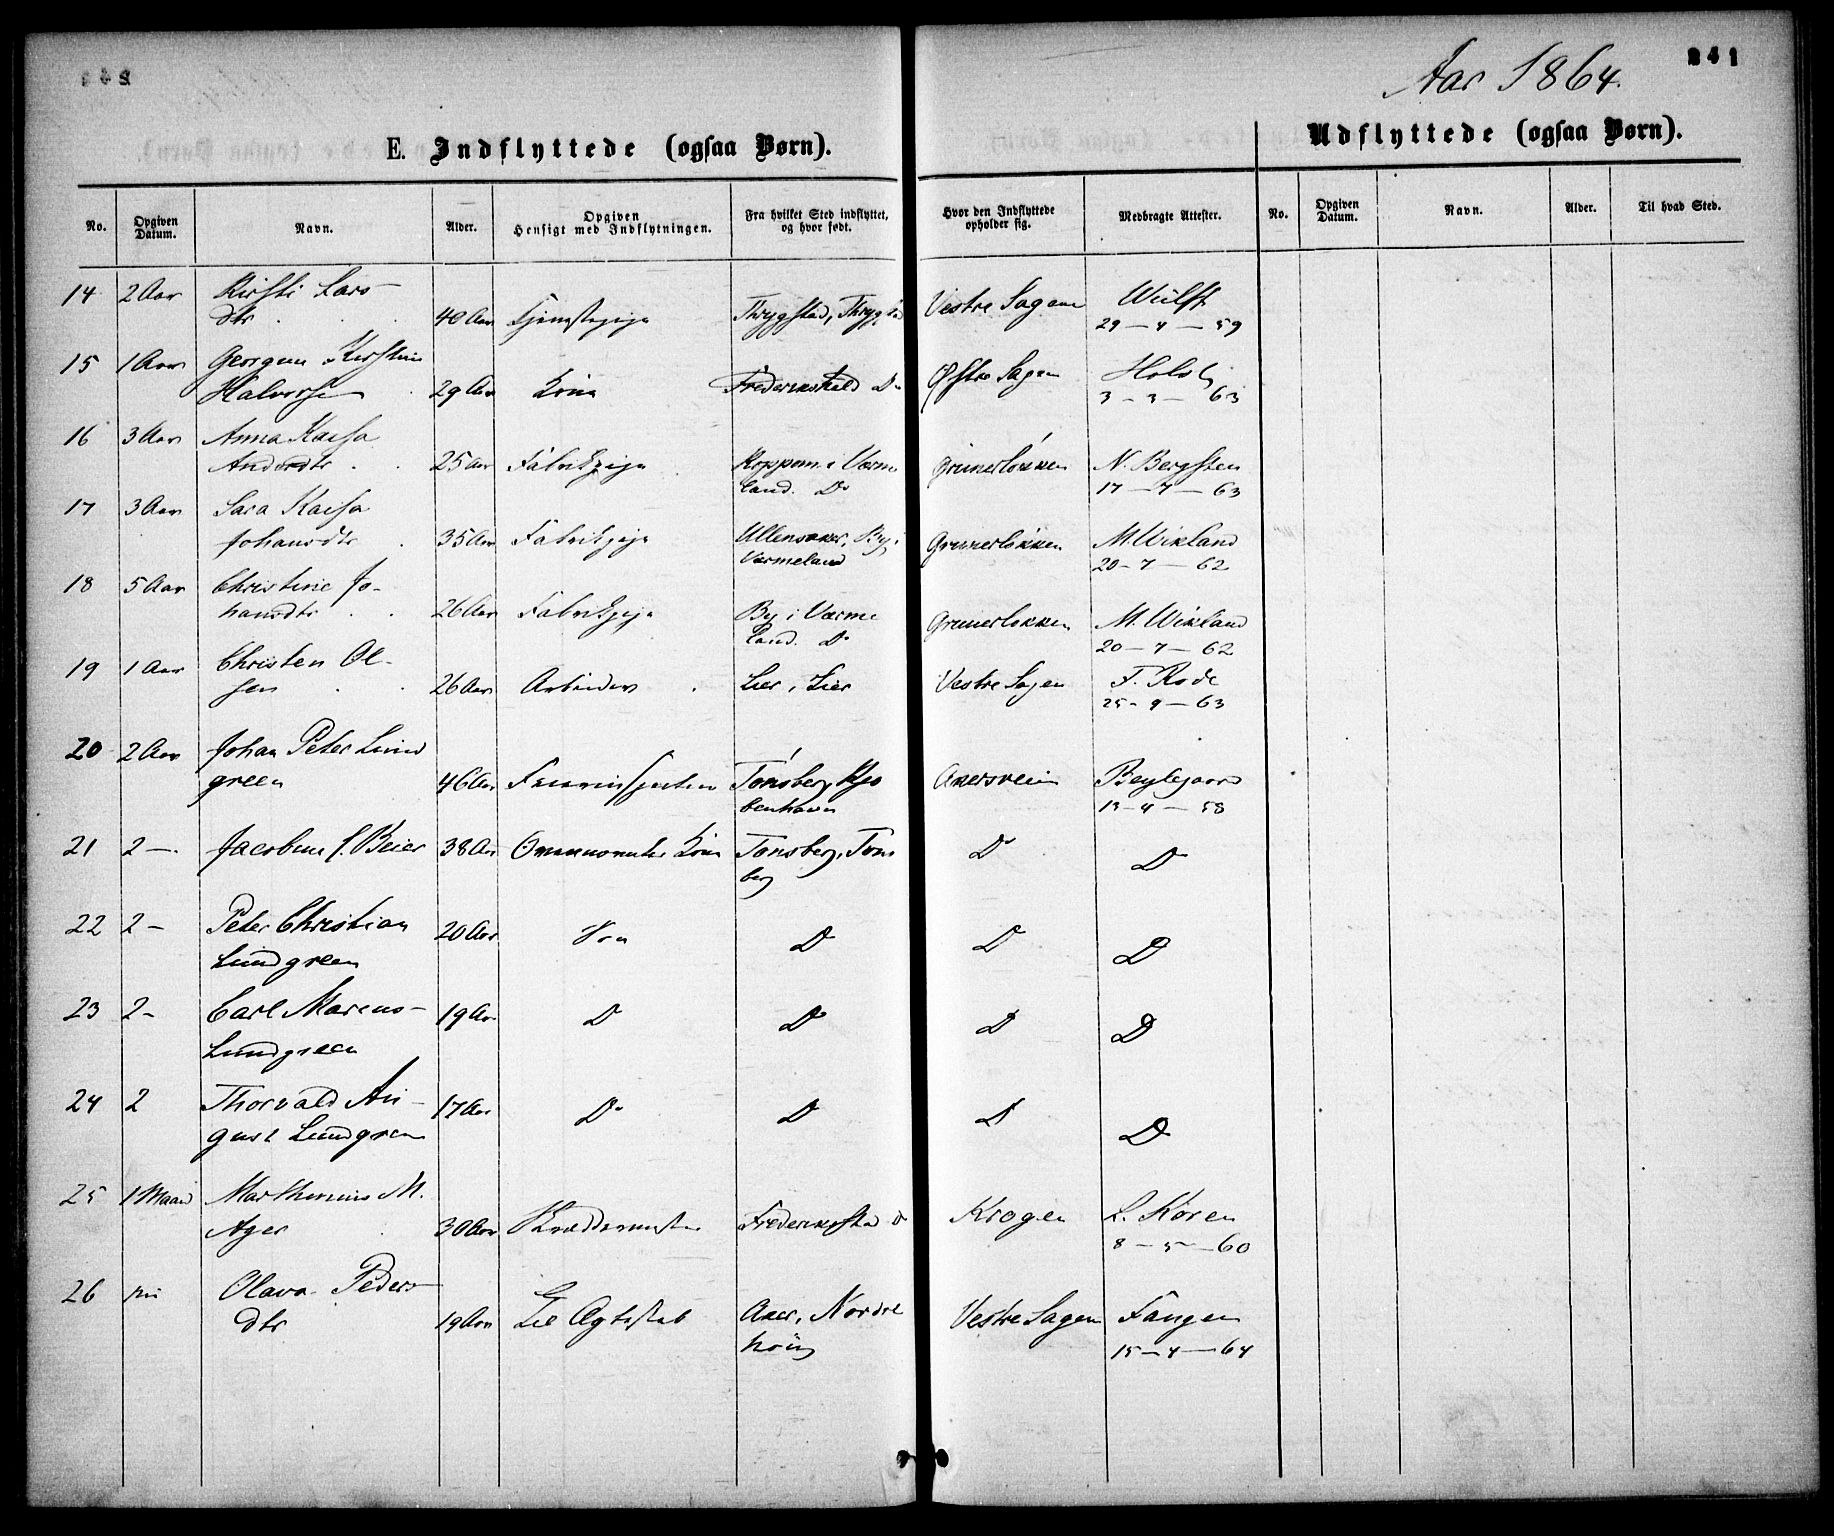 Aar 1864.
241
E. Indflyttede (ogsaa Børn).
Udflyttede (ogsaa Børn).
No. Opgiven Datum. Navn. Alder. Opgiven Hensigt med Indflytningen. Fra hvilket Sted indflyttet, og hvor født. Hvor den Indflyttede opholder sig. Medbragte Attester. No. Opgiven Datum. Navn. Alder. Til hvad Sted.
14 2 Aar Kirsti Lars-
dtr 40 Aar Tjenestepige Thrygstad, Vestre Sagene Wulff
29-4-59
15 1 Aar Georgine Kirstine
Halvorsen 29 Aar Kone Frederikshald Do Østre Sagen Holst
3-3-63
16 3 Aar Anna Kaisa
Andersdtr 25 Aar Fabrikpige Koppom i Værme Grünerløkken N. Bergsten
land. Do 17-7-63
17 3 Aar Sara Kaisa
Johansdtr 35 Aar Fabrikpige Ullensaker, By i Grunerløkken M. Wikland
Værmeland 20-7-62
18 5 Aar Christine Jo-
hansdtr 26 Aar Fabrikpige By i Værme Grunerløkken M. Wikland
land. Do 20-7-62
19 1 Aar Christen Ol-
sen 26 Aar Arbeider Lier, Lier Vestre Sagen F. Rode
25-9-63
20 2 Aar Johan Peter Lund
green 46 Aar Tønsberg, Kjø Akersveien
benhavn 13-4-58
21 2 - Jacobine f. Beier 38 Aar Kone Tønsberg, Tøns Do Do
berg
22 2 - Peter Christian 20 Aar Søn Do Do Do
Lundgreen
23 2 - Carl Marcus 19 Aar Do Do Do Do
Lundgreen
24 2 Thorvald Au- 17 Aar Do Do Do Do
gust Lundgreen
25 1 Maaned Marthinius M.
Ager 30 Aar Skræddermester Frederiksstad Do Krogen L. Koren
8-5-60
26 nu Olava Peders
dtr 19 Aar Til Ægteskab Aker, Nordre Vestre Sagen Fangen
15-4-64